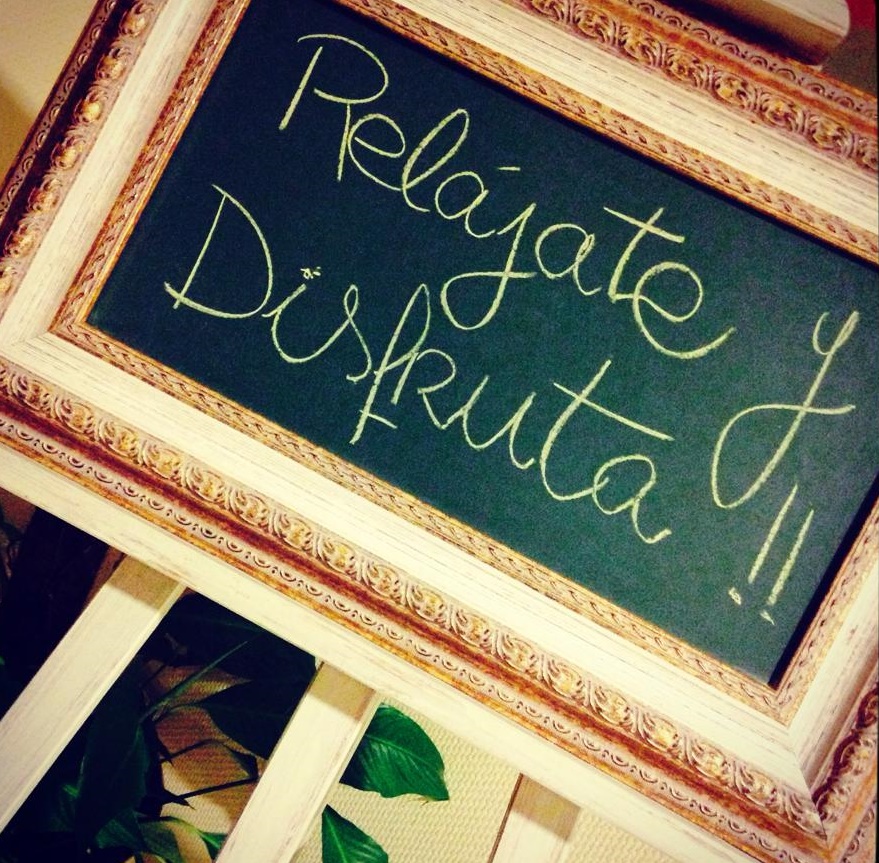 Relájate y
Disfruta !!